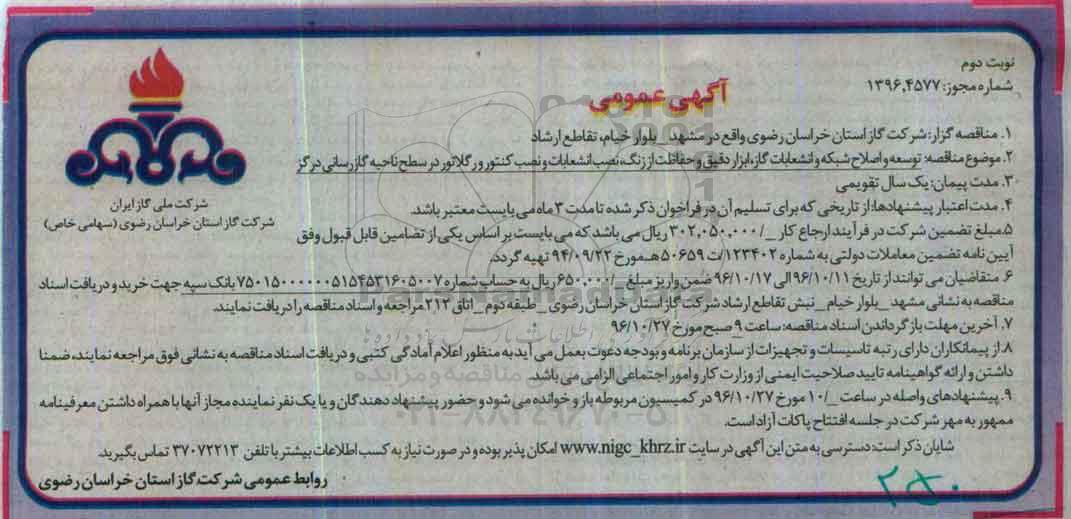 نوبت دوم
شماره مجوز: ۱۳۹۶,۴۵۷۷
آگهی عمومی
شرکت ملی گاز ایران
شرکت گاز استان خراسان رضوی (سهامی خاص)
۱. مناقصه گزار: شرکت گاز استان خراسان رضوی واقع در مشهد _ بلوار خیام، تقاطع ارشاد
۲. موضوع مناقصه: توسعه و اصلاح شبکه و انشعابات گاز، ابزار دقیق و حفاظت از زنگ، نصب انشعابات و نصب کنتور و رگلاتور در سطح ناحیه گازرسانی درگز
۳. مدت پیمان: یک سال تقویمی
۴. مدت اعتبار پیشنهادها: از تاریخی که برای تسلیم آن در فراخوان ذکر شده تا مدت ۳ ماه می بایست معتبر باشد.
۵. مبلغ تضمین شرکت در فرآیند ارجاع کار _/۳۰۲,۰۵۰,۰۰۰ ریال می باشد که می بایست بر اساس یکی از تضامین قابل قبول وفق
آیین نامه تضمین معاملات دولتی به شماره ۱۲۳۴۰۲/ت ۵۰۶۵۹ هـ مورخ ۹۴/۰۹/۲۲ تهیه گردد.
۶. متقاضیان می توانند از تاریخ ۹۶/۱۰/۱۱ الی ۹۶/۱۰/۱۷ ضمن واریز مبلغ _/۶۵۰,۰۰۰ ریال به حساب شماره ۷۵۰۱۵۰۰۰۰۰۰۵۱۵۴۵۳۱۶۰۵۰۰۷ بانک سپه جهت خرید و دریافت اسناد
مناقصه به نشانی مشهد _ بلوار خیام _ نبش تقاطع ارشاد شرکت گاز استان خراسان رضوی _ طبقه دوم _ اتاق ۲۱۲ مراجعه و اسناد مناقصه را دریافت نمایند.
۷. آخرین مهلت بازگرداندن اسناد مناقصه: ساعت ۹ صبح مورخ ۹۶/۱۰/۲۷
۸. از پیمانکاران دارای رتبه تاسیسات و تجهیزات از سازمان برنامه و بودجه دعوت بعمل می آید به منظور اعلام آمادگی کتبی و دریافت اسناد مناقصه به نشانی فوق مراجعه نمایند، ضمنا
داشتن و ارائه گواهینامه تایید صلاحیت ایمنی از وزارت کار و امور اجتماعی الزامی می باشد.
۹. پیشنهادهای واصله در ساعت _/۱۰ مورخ ۹۶/۱۰/۲۷ در کمیسیون مربوطه باز و خوانده می شود و حضور پیشنهاد دهندگان و یا یک نفر نماینده مجاز آنها با همراه داشتن معرفینامه
ممهور به مهر شرکت در جلسه افتتاح پاکات آزاد است.
شایان ذکر است: دسترسی به متن این آگهی در سایت www.nigc_khrz.ir امکان پذیر بوده و در صورت نیاز به کسب اطلاعات بیشتر با تلفن ۳۷۰۷۲۲۱۳ تماس بگیرید.
روابط عمومی شرکت گاز استان خراسان رضوی
۰۲۱-۸۸۳۴۹۶۷۰-۵